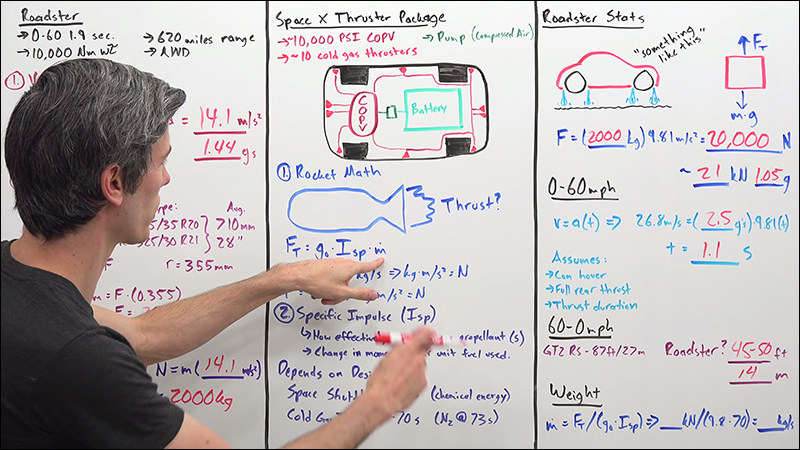 Roadster
→ 0-60 1.9 sec. → 620 miles range
→ 10,000 Nm → AWD
①
14.1 m/s²
1.44 gs
Avg.
35 R20 >10mm
30 R21 28"
r = 355mm
= F·(0.355)
N = m(14.1 m/s²)
= 2000kg
Space X Thruster Package
→ ~10,000 PSI COPV → Pump (Compressed Air)
→ ~10 cold gas thrusters
COPV
Battery
① Rocket Math
Thrust?
F_T = g₀·Isp·ṁ
kg/s ⇒ kg·m/s² = N
m/s² = N
② Specific Impulse (Isp)
↳ How propellant (s)
↳ Change in unit fuel used.
Depends on
Space (chemical energy)
Cold 70 s (N₂ @ 73s)
Roadster Stats
"something like this"
F_T
m·g
F = (2000 kg) 9.81 m/s² = 20,000 N
~ 21 kN 1.05 g
0-60mph
v = a(t) ⇒ 26.8 m/s = (2.5 g's) 9.81 (t)
t = 1.1 s
Assumes:
→ Can hover
→ Full rear thrust
→ Thrust duration
60-0mph
GT2 RS - 87ft/27m Roadster? 45-50 ft
14 m
Weight
ṁ = F_T/(g₀·Isp) ⇒ __ kN/(9.8·70) = __ kg/s